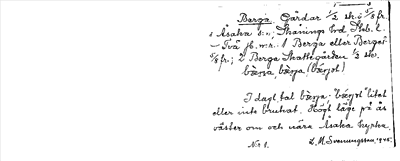 Berga. Gårdar 1/2 sk. o 5/8 fr.
i Åsaka s:n; Skånings hrd Skb. l.
- Två jb. n:r. 1 Berga eller Berget
5/8 fr.; 2 Berga Skattegården 1/2 sk.
I dagl. tal litet
eller intet brukat. Högt läge på ås
väster om och nära Åsaka kyrka.
Nr 1. L. M. Svenungsson, 1945.